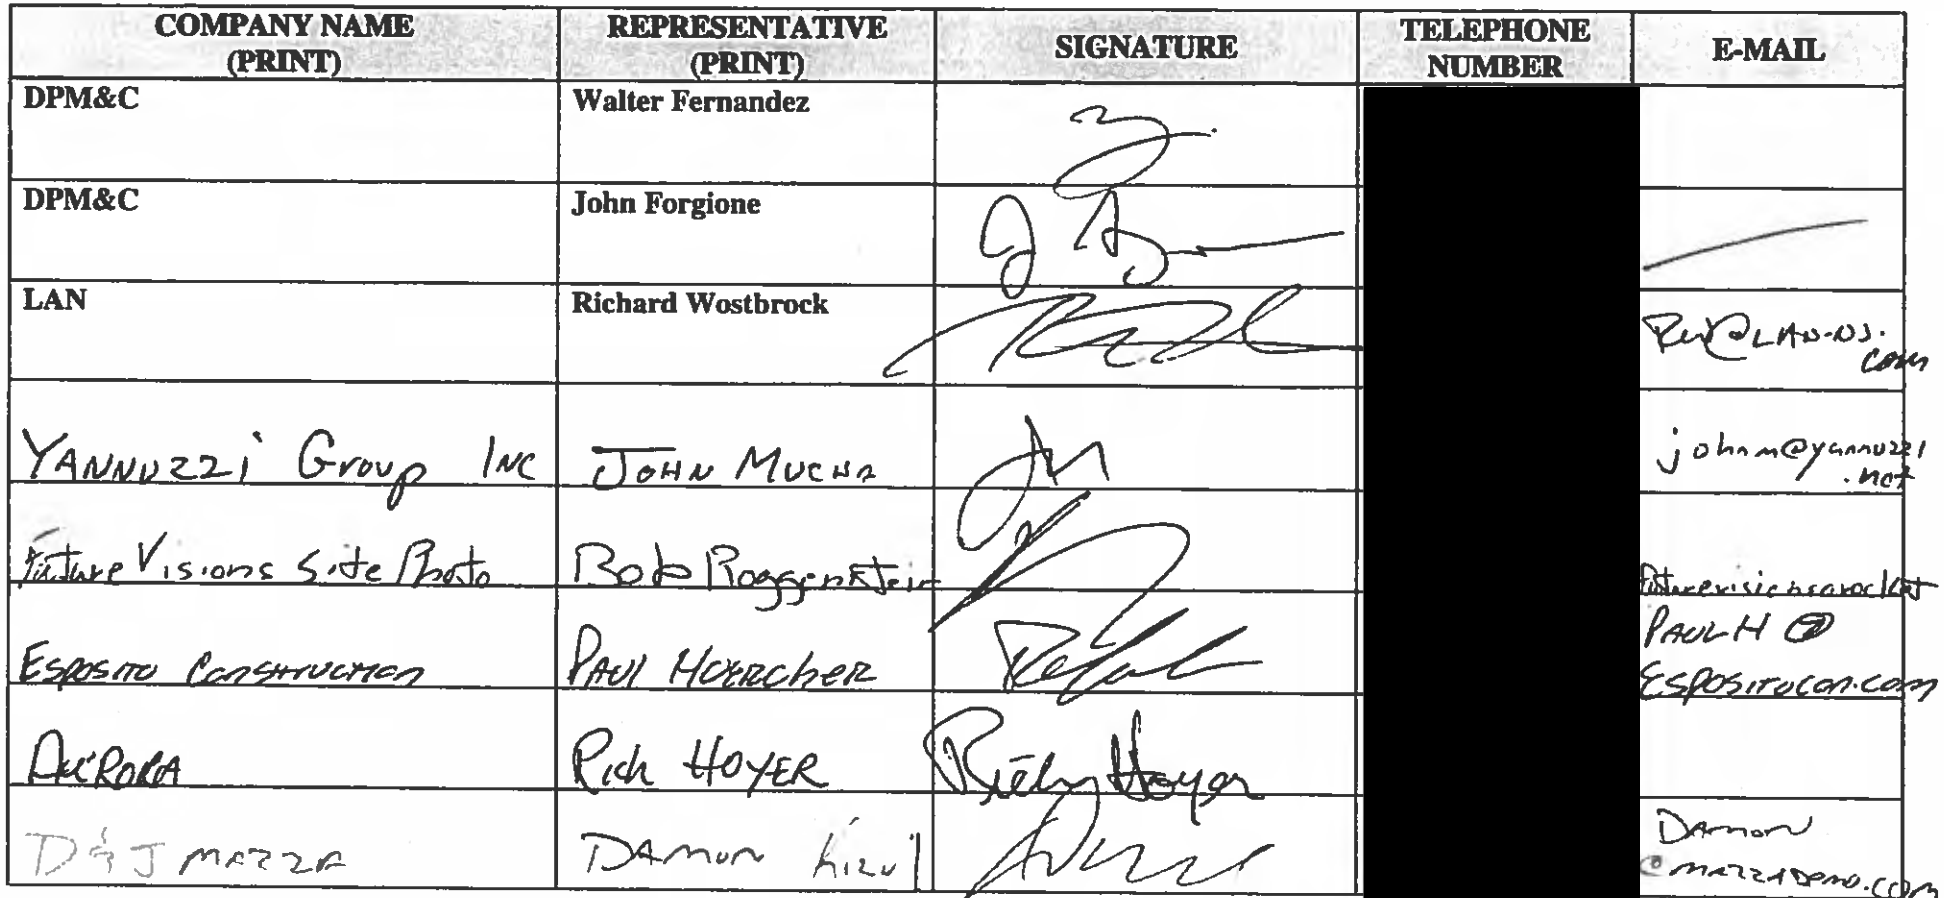 COMPANY NAME
(PRINT)
REPRESENTATIVE
(PRINT)
SIGNATURE
TELEPHONE
NUMBER
E-MAIL
DPM&C
Walter Fernandez
DPM&C
John Forgione
LAN
Richard Wostbrock
@LAN-NJ.
com
YANNUZZi Group INC
JOHN MUCHA
johnm@yannuzzi
.net
Future Visions Site Photo
Bob Roggenstein
ESPOSITO CONSTRUCTION
PAUL
PAULH @
ESPOSITOCON.COM
AURORA
Rich HOYER
Hoyer
D&J MAZZA
DAMON
DAMON
@MAZZADEMO.COM